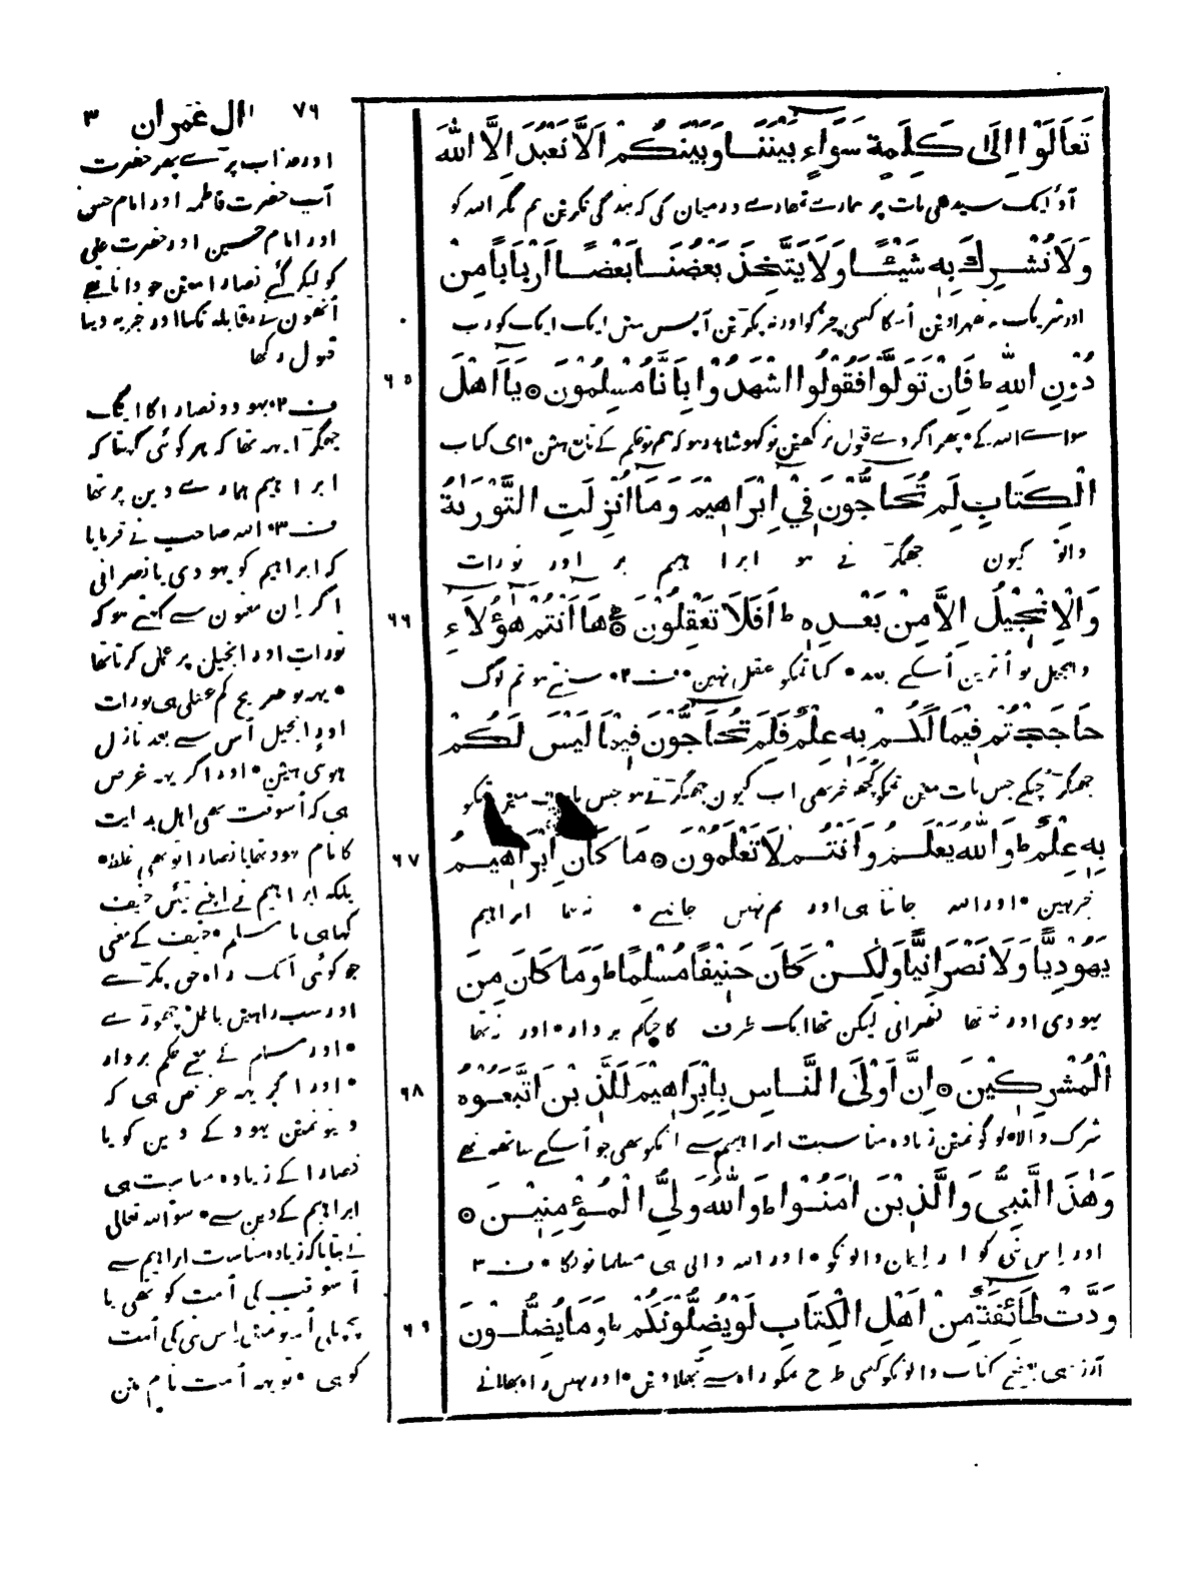 ٧٦ اٰل عمران ٣
تَعَالَوْا اِلٰی كَلِمَةٍ سَوَاءٍ بَيْنَنَا وَبَيْنَكُمْ اَلَّا نَعْبُدَ اِلَّا اللّٰهَ
آؤ ایک سیدھی بات پر ہمارے تمھارے درمیان کی کہ بندگی نکرین ہم مگر اللہ کو
وَلَا نُشْرِكَ بِهٖ شَيْئًا وَلَا يَتَّخِذَ بَعْضُنَا بَعْضًا اَرْبَابًا مِنْ
اور شریک نہ ٹھہراوین اُسکا کسی چیز کو اور نہ پکڑین آپس مین ایک ایک کو رب
٦٥ دُوْنِ اللّٰهِ ط فَاِنْ تَوَلَّوْا فَقُولُوا اشْهَدُوْا بِاَنَّا مُسْلِمُوْنَ ۞ يَا اَهْلَ
سواے اللہ کے • پھر اگر وے قبول نرکھین تو کہو شاہد رہو کہ ہم تو حکم کے تابع ہین • ای کتاب
الْكِتَابِ لِمَ تُحَاجُّوْنَ فِيْ اِبْرَاهِيْمَ وَمَا اُنْزِلَتِ التَّوْرٰىةُ
والو کیون جھگڑتے ہو ابراہیم پر اور تورات
٦٦ وَالْاِنْجِيْلُ اِلَّا مِنْ بَعْدِهٖ ط اَفَلَا تَعْقِلُوْنَ ۞ هَا اَنْتُمْ هٰؤُلَاءِ
و انجیل تو اُترین اُسکے بعد • کیا تمکو عقل نہین • ف ٢ • سنتے ہو تم لوگ
حَاجَجْتُمْ فِيْمَا لَكُمْ بِهٖ عِلْمٌ فَلِمَ تُحَاجُّوْنَ فِيْمَا لَيْسَ لَكُمْ
جھگڑ چکے جس بات مین تمکو کچھ خبر تھی اب کیون جھگڑتے ہو جس بات مین تمکو
٦٧ بِهٖ عِلْمٌ ط وَاللّٰهُ يَعْلَمُ وَاَنْتُمْ لَا تَعْلَمُوْنَ ۞ مَا كَانَ اِبْرَاهِيْمُ
خبر نہین • اور اللہ جانتا ہی اور تم نہین جانتے • نہ تھا ابراہیم
يَهُوْدِيًّا وَلَا نَصْرَانِيًّا وَلٰكِنْ كَانَ حَنِيْفًا مُسْلِمًا ط وَمَا كَانَ مِنَ
یہودی اور نہ تھا نصرانی لیکن تھا ایک طرف کا حکم بردار • اور نہ تھا
٦٨ الْمُشْرِكِيْنَ ۞ اِنَّ اَوْلَى النَّاسِ بِاِبْرَاهِيْمَ لَلَّذِيْنَ اتَّبَعُوْهُ
شرک والا • لوگونمین زیادہ مناسبت ابراہیم سے اُنکو تھی جو اُسکے ساتھ تھے
وَهٰذَا النَّبِيُّ وَالَّذِيْنَ اٰمَنُوْا ط وَاللّٰهُ وَلِيُّ الْمُؤْمِنِيْنَ ۞
اور اِس نبی کو اور ایمان والونکو • اور اللہ والی ہی مسلمانونکا • ف ٣
٦٩ وَدَّتْ طَائِفَةٌ مِنْ اَهْلِ الْكِتَابِ لَوْ يُضِلُّوْنَكُمْ ط وَمَا يُضِلُّوْنَ
آرزو ہی بعضے کتاب والونکو کسی طرح تمکو راہ سے بھلاوین • اور نہین راہ بھلاتے
اور عذاب پڑے پھر حضرت
آپ حضرت فاطمہ اور امام حسن
اور امام حسین اور حضرت علی
کو لیکر گئے نصارا مین جو دانا تھے
اُنھون نے مقابلہ نکیا اور جزیہ دینا
قبول رکھا
ف ٢ • یہود و نصارا کا ایک
جھگڑا یہہ تھا کہ ہر کوئی کہتا کہ
ابراہیم ہمارے دین پر تھا
ف ٣ • اللہ صاحب نے فرمایا
کہ ابراہیم کو یہودی یا نصرانی
اگر اِن معنون سے کہتے ہو کہ
تورات اور انجیل پر عمل کرتا تھا
• یہہ تو صریح کم عقلی ہی تورات
اور انجیل اُس سے بعد نازل
ہوئی ہین • اور اگر یہہ غرض
ہی کہ اُسوقت بھی اہل ہدایت
کا نام یہود تھا یا نصارا تو بھی غلط •
بلکہ ابراہیم نے اپنے تئین حنیف
کہا ہی یا مسلم • حنیف کے معنی
جو کوئی ایک راہ حق پکڑے
اور سب راہین باطل چھوڑے
• اور مسلم کے معنے حکم بردار
• اور اگر یہہ غرض ہی کہ
دینونمین یہود کے دین کو یا
نصارا کے زیادہ مناسبت ہی
ابراہیم کے دین سے • سو اللہ تعالی
نے بتایا کہ زیادہ مناسبت ابراہیم سے
اُسوقت کی اُمت کو تھی یا
پچھلی اُمتونمین اِس نبی کی اُمت
کو ہی • تو یہہ اُمت نام مین